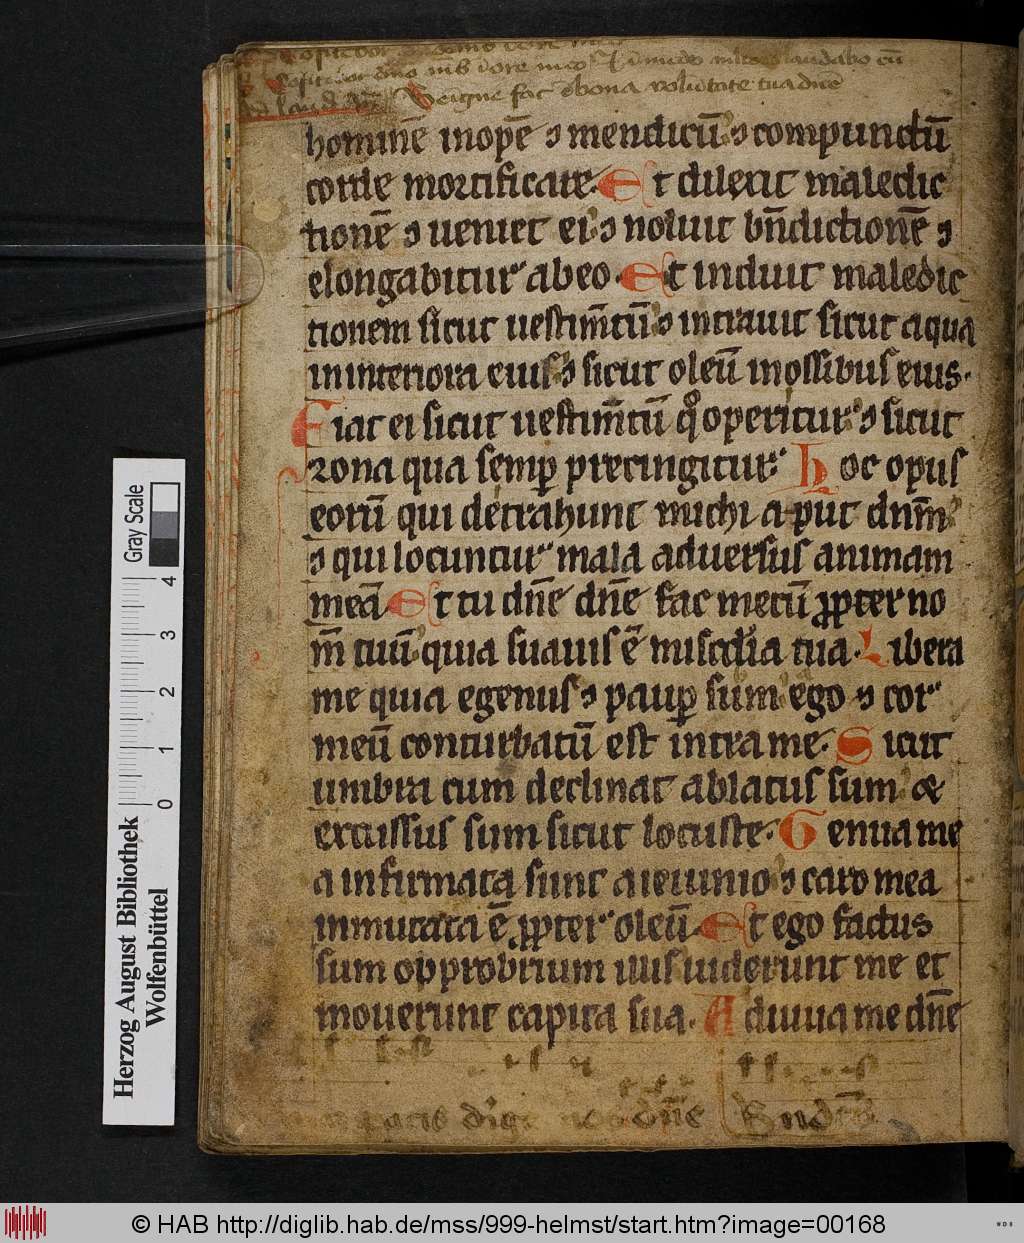 Confitebor dno nimis in ore meo laudabo eum
Benigne fac in bona voluntate tua dne
hominē inopē ⁊ mendicū ⁊ compunctū
corde mortificare. Et dilexit maledic
tionē ⁊ ueniet ei ⁊ noluit bn̄dictionē ⁊
elongabitur abeo. Et induit maledic
tionem sicut uestim̄tū ⁊ intrauit sicut aqua
in interiora eius ⁊ sicut oleū inossibus eius.
Fiat ei sicut uestim̄tū qͦ operitur ⁊ sicut
zona qua semꝑ precingitur. Hoc opus
eorū qui detrahunt michi aput dn̄m
⁊ qui locuntur mala aduersus animam
meā Et tu dn̄e dn̄e fac mecū ꝓpter no
m̄ tuū quia suauis ē misc̄dia tua. Libera
me quia egenus ⁊ pauꝑ sum ego ⁊ cor
meū conturbatū est intra me. Sicut
umbra cum declinat ablatus sum &
excussus sum sicut locuste. Genua me
a infirmata sunt a ieiunio ⁊ caro mea
inmutata ē ꝓpter oleū. Et ego factus
sum opprobrium illis uiderunt me et
mouerunt capita sua. Adiuua me dn̄e
Herzog August Bibliothek
Wolfenbüttel
Gray Scale
0 1 2 3 4
© HAB http://diglib.hab.de/mss/999-helmst/start.htm?image=00168